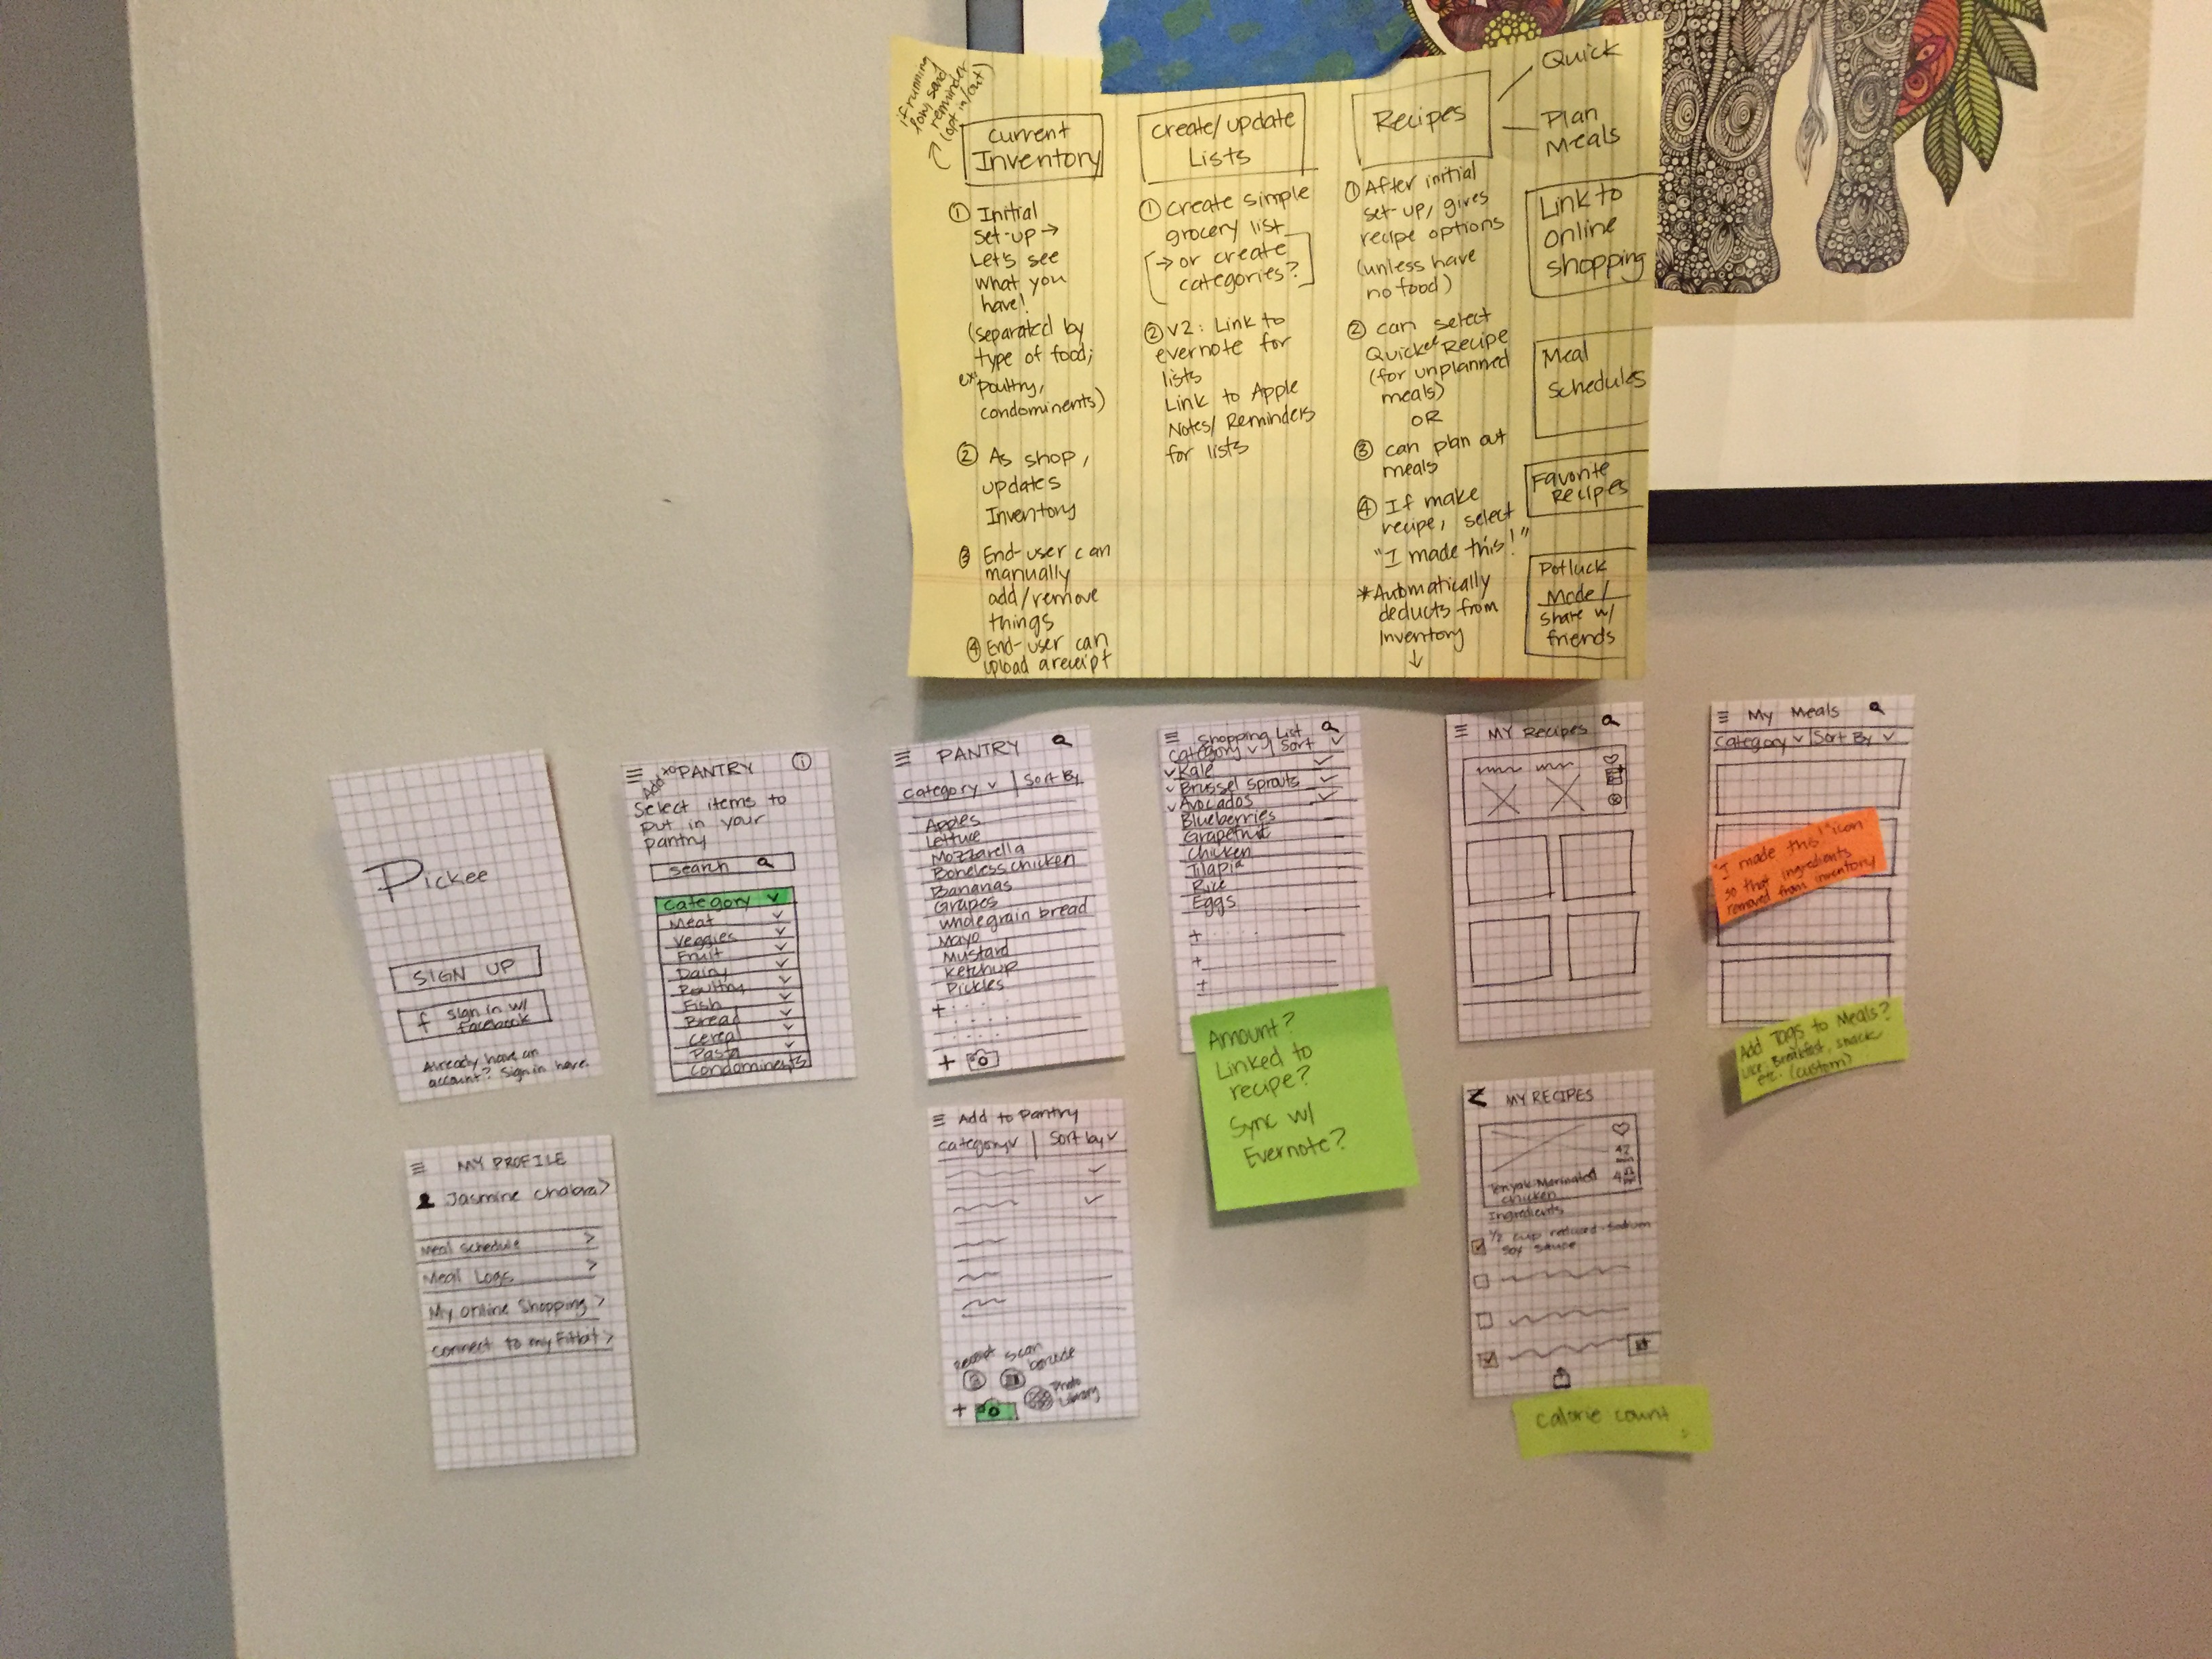 if running
low, send
reminder
(opt in/out)
Current
Inventory
① Initial
set-up →
Let's see
what you
have!
(separated by
type of food;
ex: poultry,
condominents)
② As shop,
updates
Inventory
③ End-user can
manually
add/remove
things
④ End-user can
upload a receipt
Create/update
Lists
① Create simple
grocery list
[→ or create
categories?]
② v2: Link to
evernote for
lists
Link to Apple
Notes/Reminders
for lists
Recipes
Quick
Plan
Meals
① After initial
set-up, gives
recipe options
(unless have
no food)
② can select
Quick Recipe
(for unplanned
meals)
OR
③ can plan out
meals
④ If make
recipe, select
"I made this!"
*Automatically
deducts from
Inventory
↓
Link to
online
shopping
Meal
Schedules
Favorite
Recipes
Potluck
Mode/
share w/
friends
Pickee
SIGN UP
f sign in w/
Facebook
Already have an
account? Sign in here.
Add to PANTRY
Select items to
put in your
pantry
search
Category
Meat
Veggies
Fruit
Dairy
Poultry
Fish
Bread
Cereal
Pasta
Condominents
PANTRY
Category | Sort By
Apples
Lettuce
Mozzarella
Boneless chicken
Bananas
Grapes
whole grain bread
Mayo
Mustard
Ketchup
Pickles
+
+
Shopping List
Category | Sort
✓ Kale
✓ Brussel Sprouts
✓ Avocados
Blueberries
Grapefruit
Chicken
Tilapia
Rice
Eggs
+
+
+
Amount?
Linked to
recipe?
Sync w/
Evernote?
MY Recipes
My Meals
Category | Sort By
"I made this!" icon
so that ingredients
removed from inventory
Add Tags to Meals?
Like: Breakfast, snack
etc. (custom)
MY PROFILE
Jasmine Chabra >
Meal Schedule >
Meal Logs >
My Online Shopping >
Connect to my Fitbit >
Add to Pantry
Category | Sort by
Receipt
Scan
barcode
Photo
Library
+
MY RECIPES
Marinated
chicken
Ingredients
1/2 cup reduced-sodium
soy sauce
Calorie count